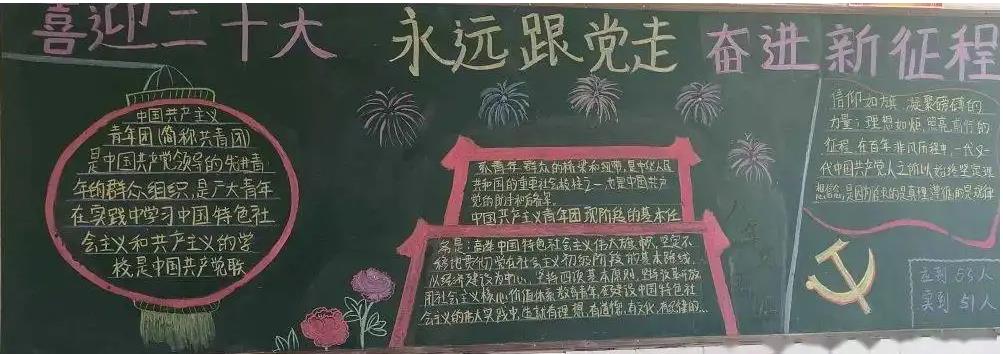 喜迎二十大 永远跟党走 奋进新征程
中国共产主义
青年团(简称共青团)
是中国共产党领导的先进青
年的群众组织,是广大青年
在实践中学习中国特色社
会主义和共产主义的学
校,是中国共产党联
系青年群众的桥梁和纽带,是中华人民
共和国的重要社会支柱之一,也是中国共产
党的助手和后备军。
中国共产主义青年团现阶段的基本任
务是:高举中国特色社会主义伟大旗帜,坚定不
移地贯彻党在社会主义初级阶段的基本路线,
以经济建设为中心,坚持四项基本原则,坚持改革开放,
用社会主义核心价值体系教育青年,在建设中国特色社
会主义的伟大实践中,造就有理想,有道德,有文化,有纪律的...
信仰如旗,凝聚磅礴的
力量;理想如炬,照亮前行的
征程,在百年非凡历程中,一代又一
代中国共产党人之所以始终坚定理
想信念,是因所秉的是真理,遵循的是规律
应到53人
实到51人